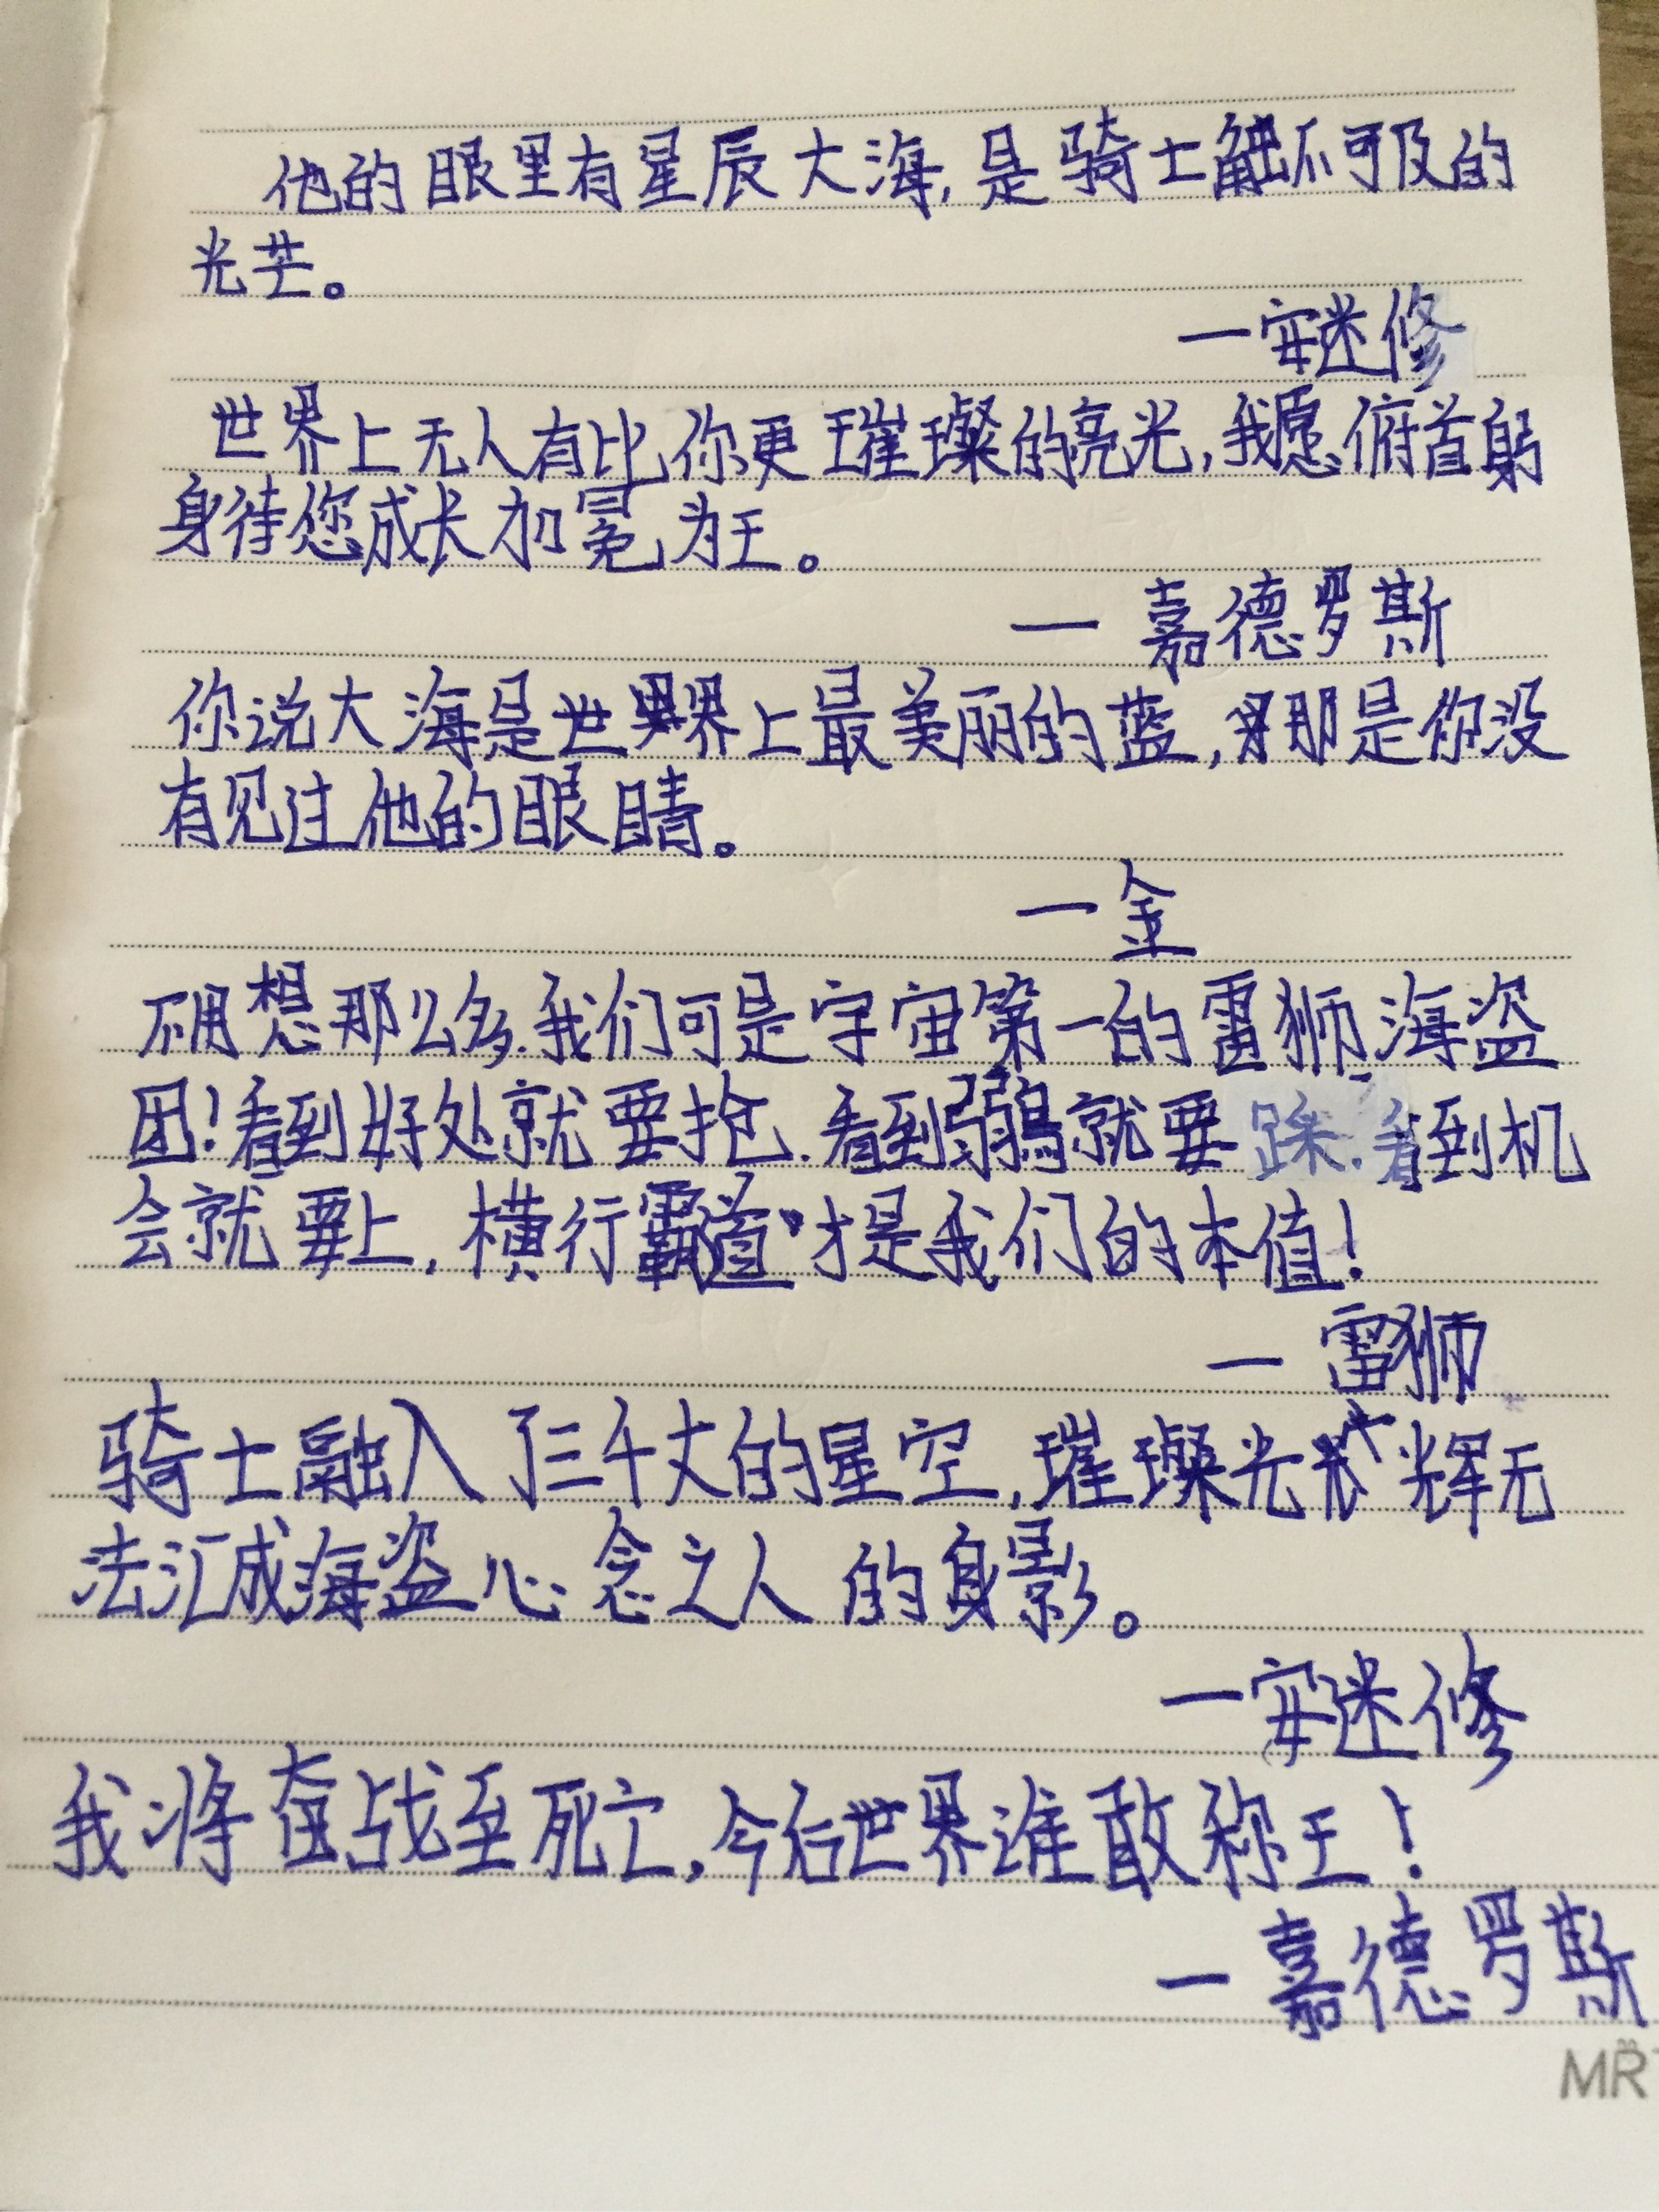 他的眼里有星辰大海,是骑士触不可及的
光芒。
一安迷修
世界上无人有比你更璀璨的亮光,我愿俯首躬
身待您成长加冕为王。
一嘉德罗斯
你说大海是世界上最美丽的蓝,那是你没
有见过他的眼睛。
一金
不用想那么多.我们可是宇宙第一的雷狮海盗
团!看到好处就要抢.看到弱就要跺.看到机
会就要上,横行霸道才是我们的本值!
一雷狮
骑士融入了三千丈的星空,璀璨光辉无
法汇成海盗心念之人的身影。
一安迷修
我将奋战至死亡,今后世界谁敢称王!
一嘉德罗斯
MR